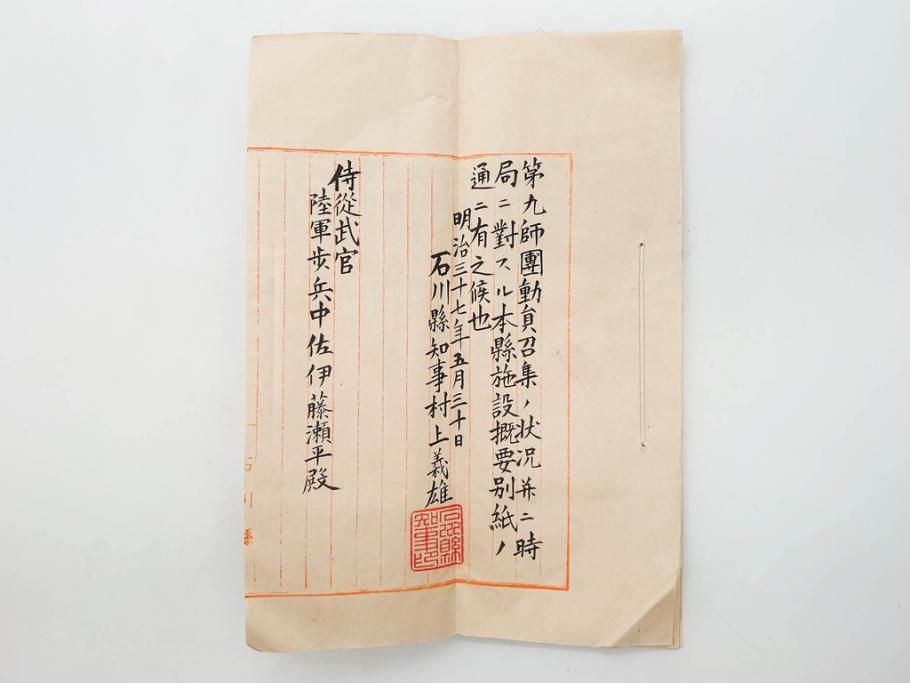 第九師團動員召集ノ状况并ニ時
局ニ對スル本縣施設概要別紙ノ
通ニ有之候也
明治三十七年五月三十日
石川縣知事村上義雄
石川縣知事印
侍從武官
陸軍歩兵中佐伊藤瀬平殿
石川縣